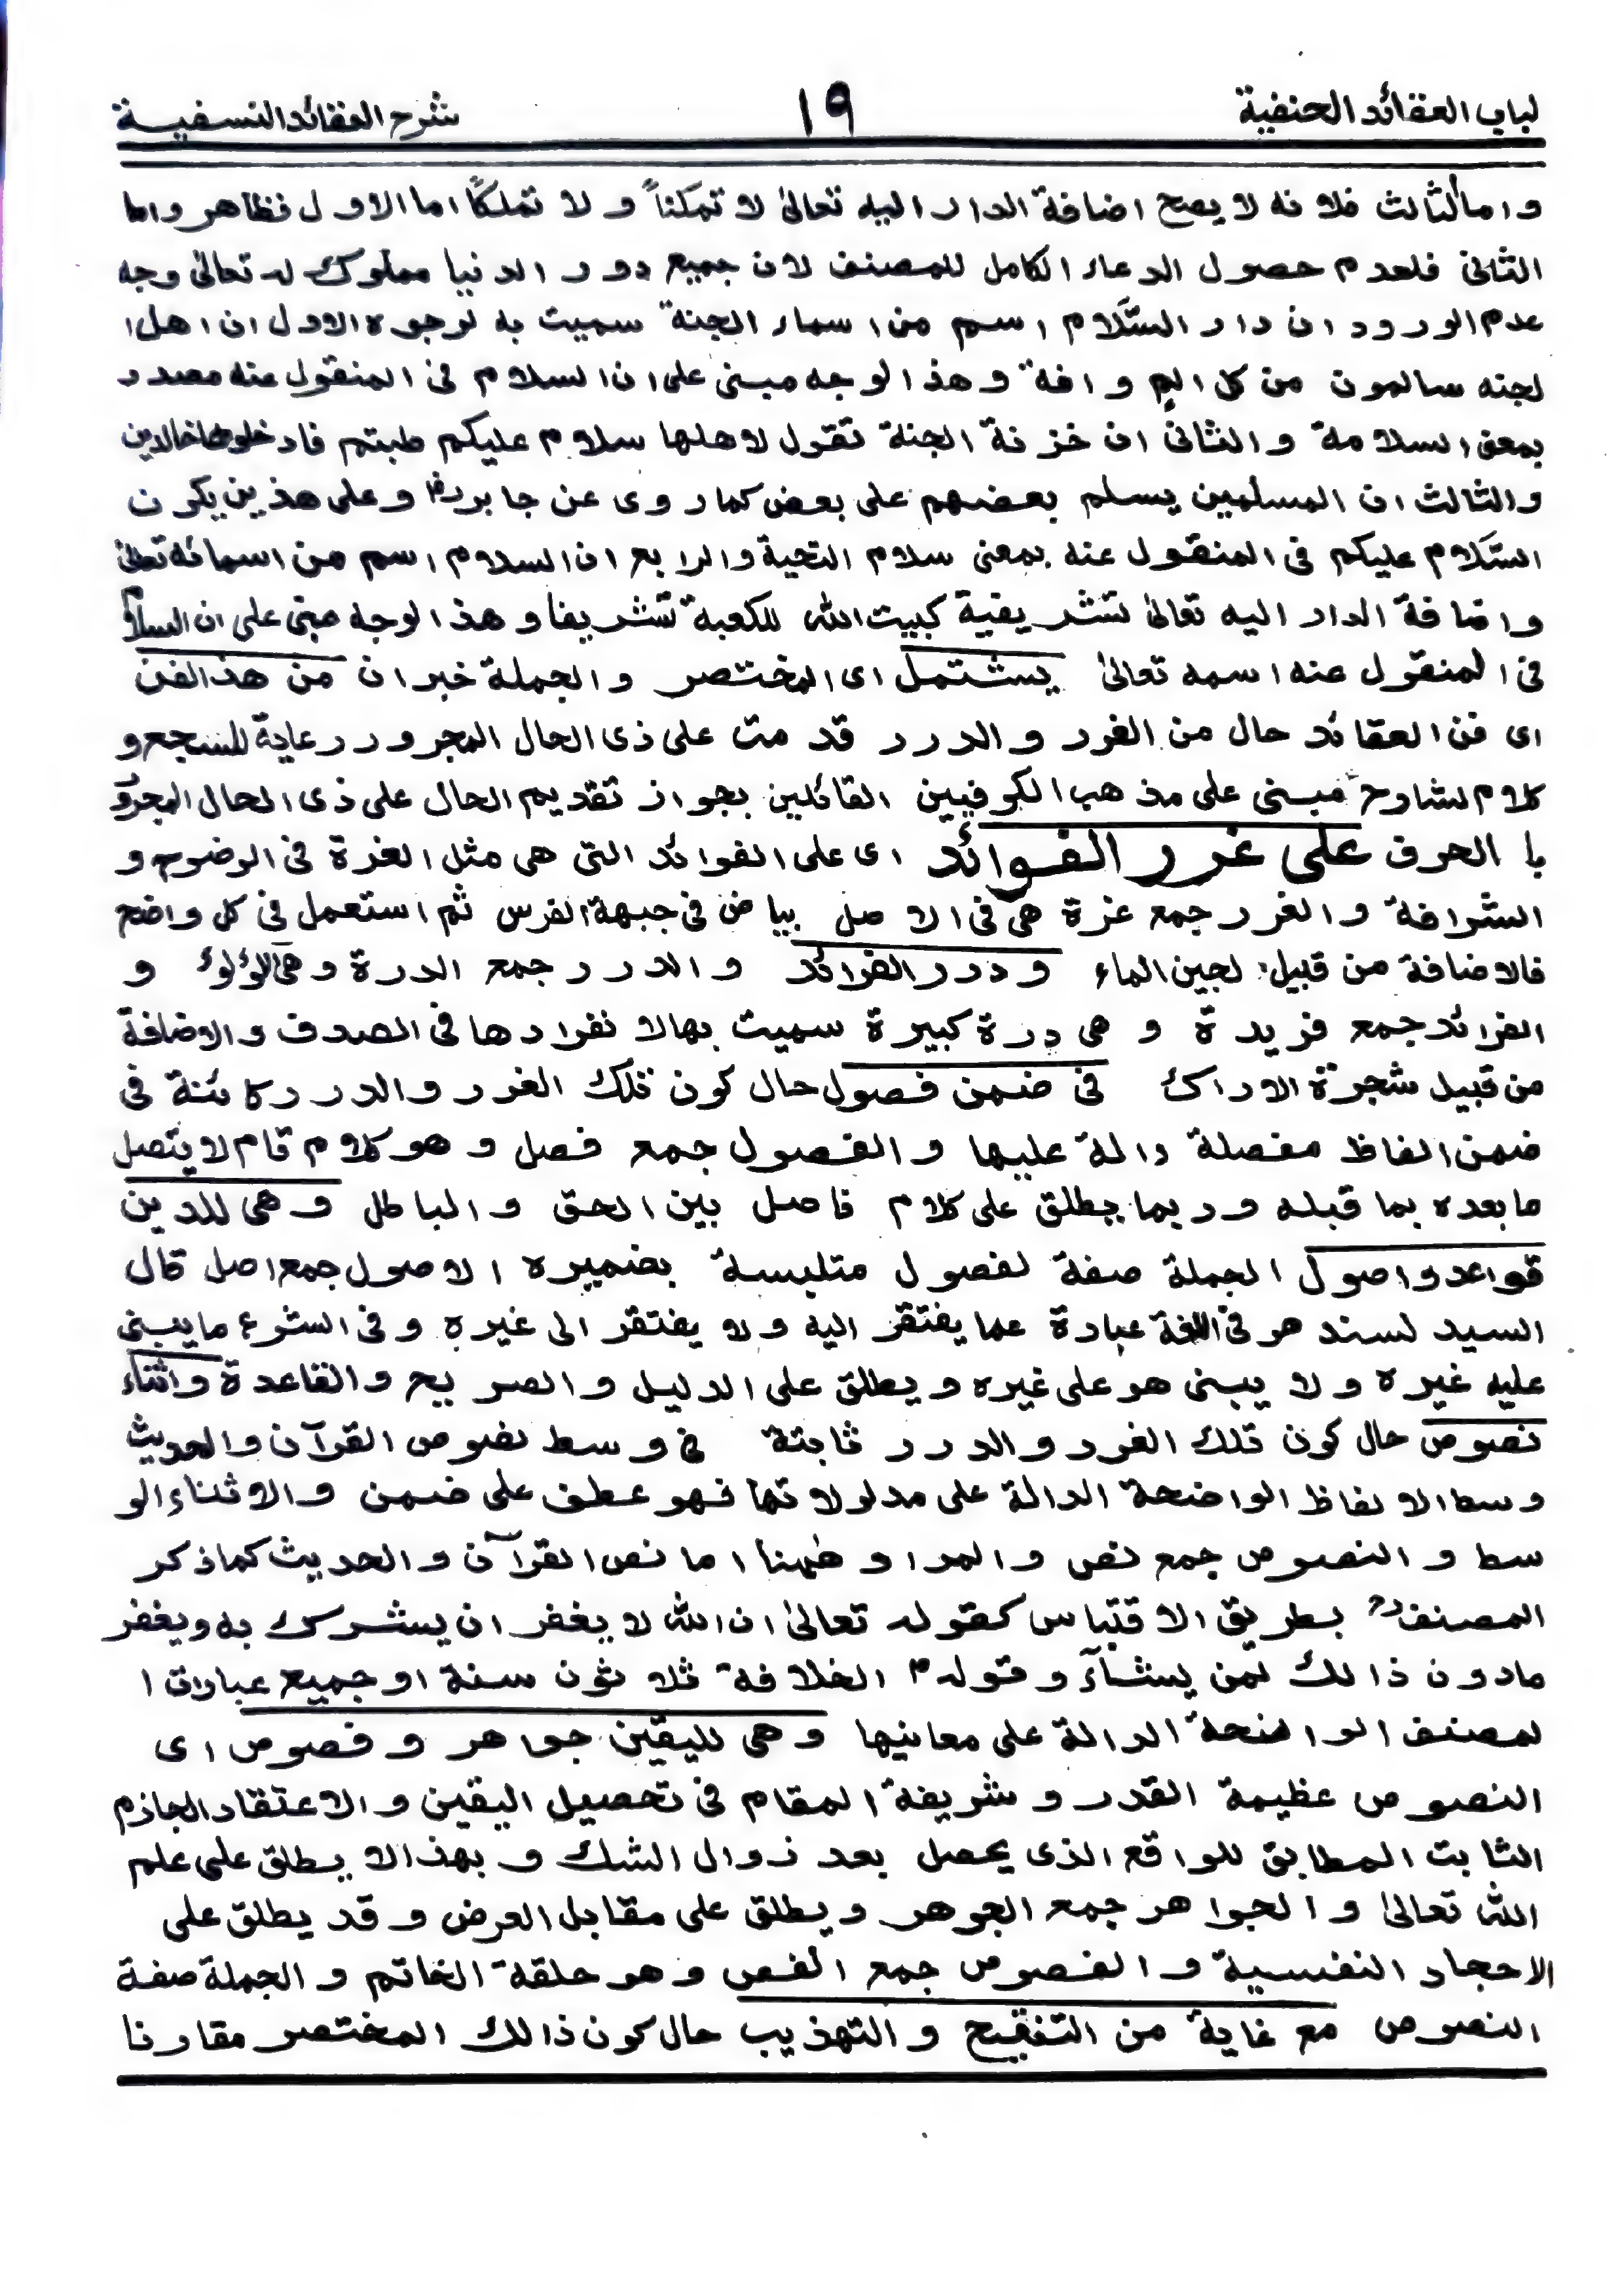 لباب العقائد الحنفية ١٩ شرح العقائد النسفية
واما الثالث فلانه لا يصح اضافة الدار اليه تعالىٰ لا تمكناً و لا تملكاً اما الاول فظاهر واما
الثانى فلعدم حصول الدعاء الكامل للمصنف لان جميع دور الدنيا مملوك له تعالىٰ وجه
عدم الورود ان دار السَّلام اسم من اسماء الجنة سميت به لوجوه الاول ان اهل ا
لجنه سالمون من كل الم و افة و هذا الوجه مبنى على ان السلام فى المنقول عنه مصدر
بمعنى السلامة و الثانى ان خزنة الجنة تقول لاهلها سلام عليكم طبتم فادخلوها خالدين
والثالث ان المسلمين يسلم بعضهم على بعض كما روى عن جابر رض وعلى هذين يكون
السَّلام عليكم فى المنقول عنه بمعنى سلام التحية والرابع ان السلام اسم من اسمائه تعالىٰ
واضافة الدار اليه تعالىٰ تشريفية كبيت الله للكعبة تشريفا و هذا الوجه مبنى على ان السلام
فى المنقول عنه اسمه تعالىٰ يشتمل اى المختصر و الجملة خبر ان من هذا الفن
اى فن العقائد حال من الغرر و الدرر قدمت على ذى الحال المجرور رعاية للسجع و
كلام لشارح مبنى على مذهب الكوفيين القائلين بجواز تقديم الحال على ذى الحال المجرور
با الحرف على غرر الفوائد اى على الفوائد التى هى مثل الغرة فى الوضوح و
الشرافة و الغرر جمع غرة هى فى الاصل بياض فى جبهة الفرس ثم استعمل فى كل واضح
فالاضافة من قبيل لجين الماء و درر الفرائد و الدرر جمع الدرة و هى الؤلوء و
الفرائد جمع فريدة و هى درة كبيرة سميت بها لانفرادها فى الصدف والاضافة
من قبيل شجرة الاراك فى ضمن فصول حال كون تلك الغرر والدرر كائنة فى
ضمن الفاظ مفصلة دالة عليها و الفصول جمع فصل و هو كلام تام لا يتصل
ما بعده بما قبله و ربما يطلق على كلام فاصل بين الحق و الباطل و هى للدين
قواعد و اصول الجملة صفة لفصول متلبسة بضميره الاصول جمع اصل قال
السيد لسند هو فى اللغة عبارة عما يفتقر اليه ولا يفتقر الى غيره و فى الشرع ما يبنى
عليه غيره ولا يبنى هو على غيره و يطلق على الدليل و الصريح و القاعدة واثناء
نصوص حال كون تلك الغرر و الدرر ثابتة فى وسط نصوص القرآن والحديث
وسط الالفاظ الواضحة الدالة على مدلولاتها فهو عطف على ضمن والاثناء الو
سط و النصوص جمع نص و المراد هٰهنا اما نص القرآن و الحديث كما ذكر
المصنفؒ بطريق الاقتباس كقوله تعالىٰ ان الله لا يغفر ان يشرك به ويغفر
مادون ذالك لمن يشآء و قوله ؑ الخلافة ثلاثون سنة او جميع عبارات ا
لمصنف الواضحة الدالة على معانيها و هى لليقين جواهر و فصوص اى
النصوص عظيمة القدر و شريفة المقام فى تحصيل اليقين والاعتقاد الجازم
الثابت المطابق للواقع الذى يحصل بعد زوال الشك و بهذا لا يطلق على علم
الله تعالىٰ و الجواهر جمع الجوهر و يطلق على مقابل العرض و قد يطلق على
الاحجار النفسية و الفصوص جمع الفص و هو حلقة الخاتم و الجملة صفة
النصوص مع غاية من التنقيح و التهذيب حال كون ذالك المختصر مقارنا